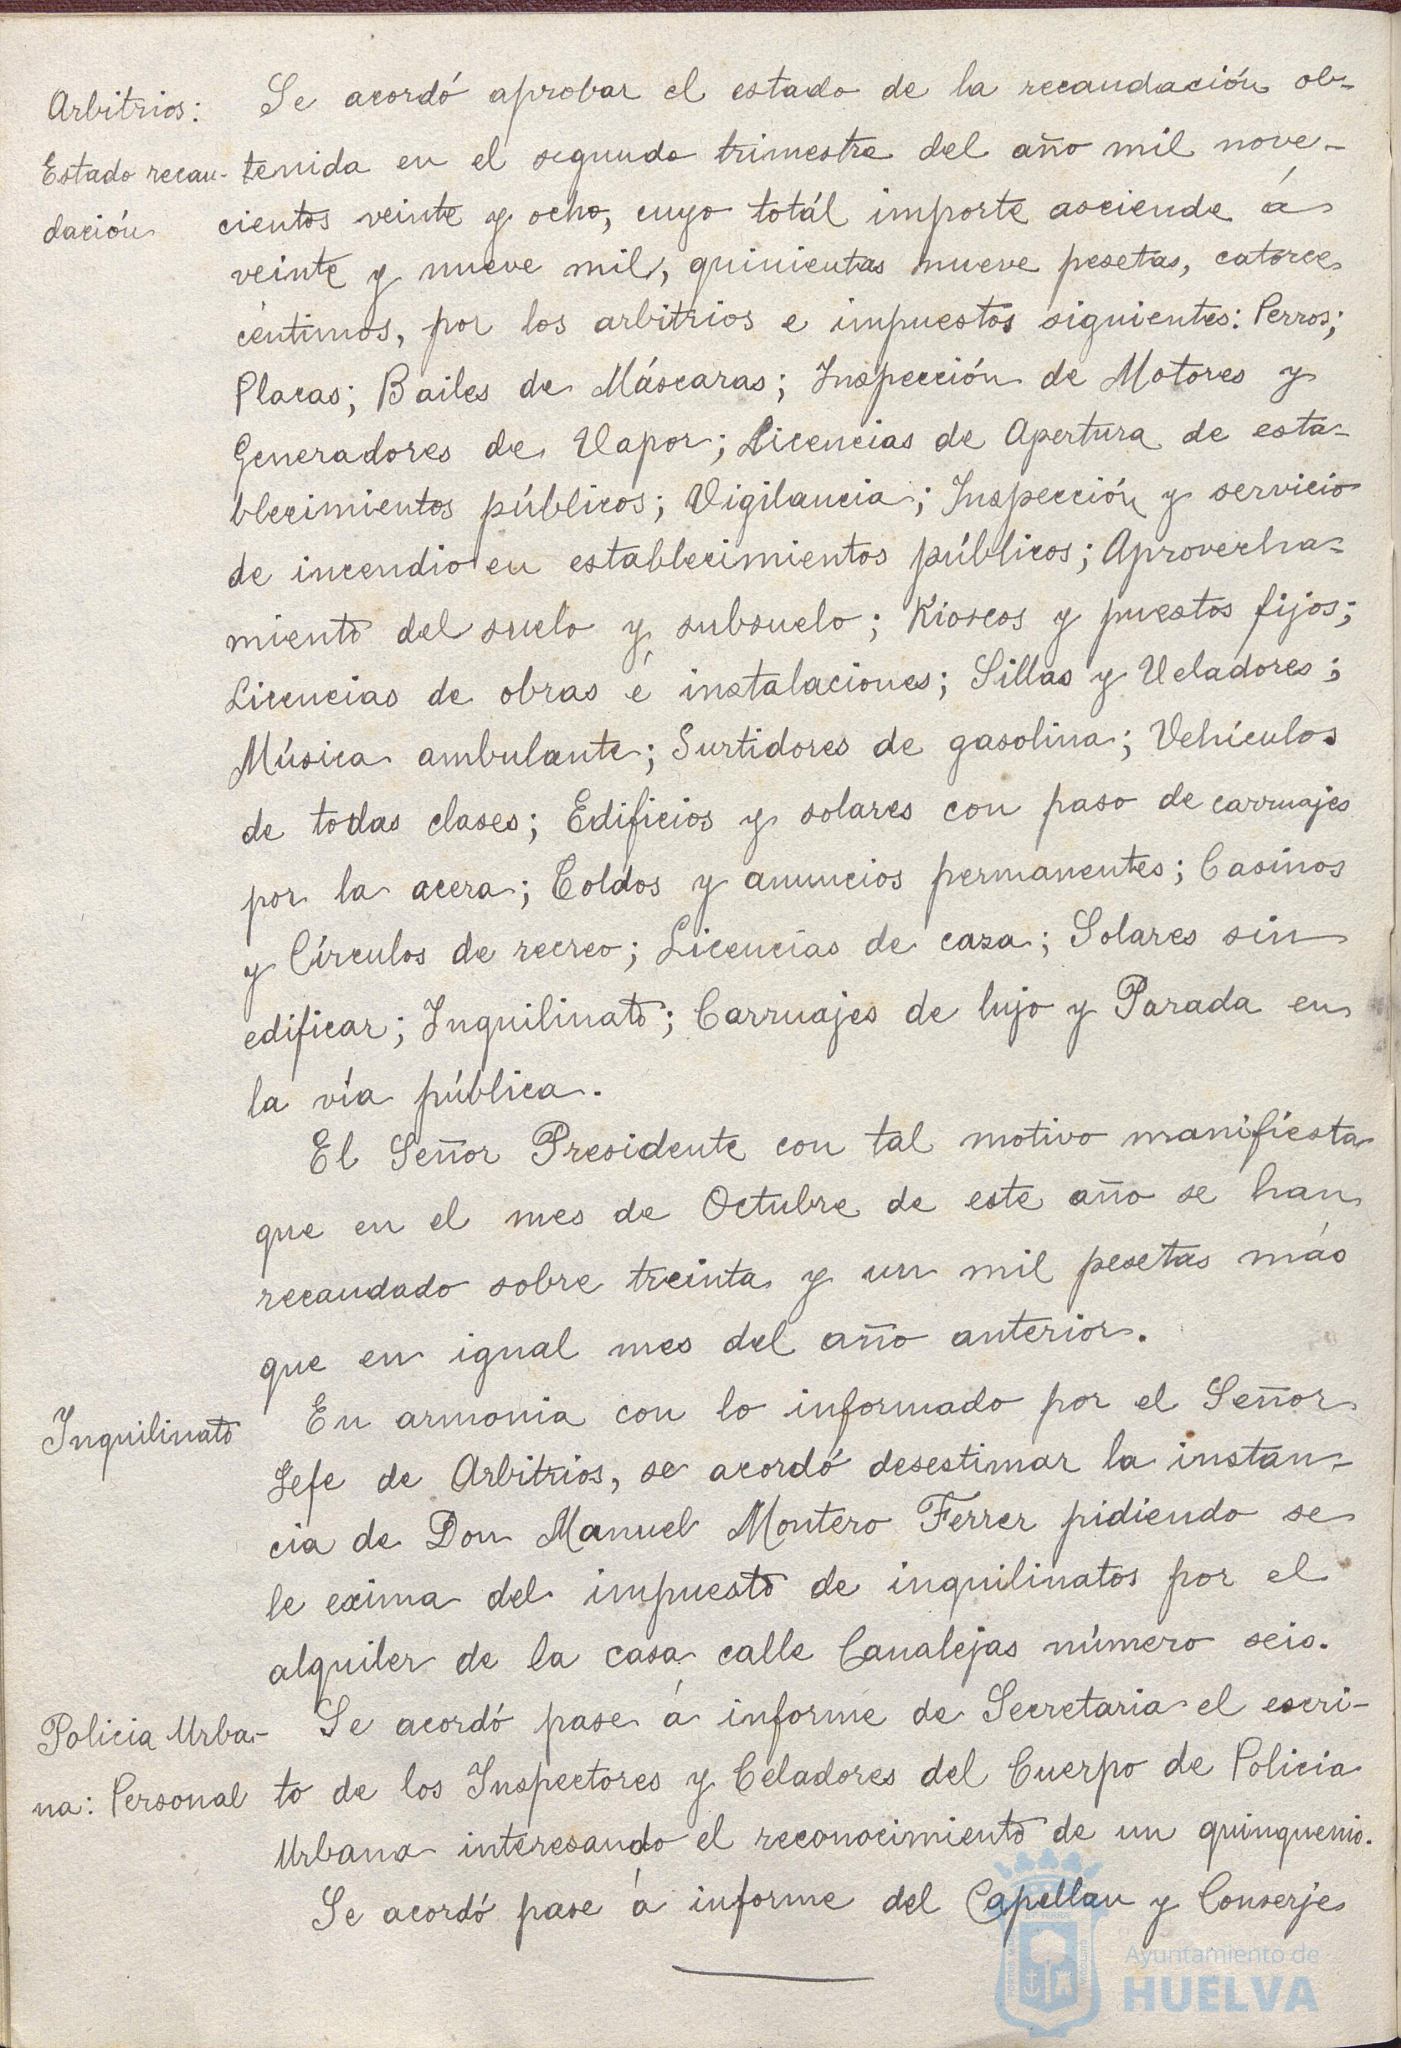 Arbitrios:
Estado recau-
dación
Se acordó aprobar el estado de la recaudación ob-
tenida en el segundo trimestre del año mil nove-
cientos veinte y ocho, cuyo totál importe asciende á
veinte y nueve mil, quinientas nueve pesetas, catorce
céntimos, por los arbitrios e impuestos siguientes: Perros;
Placas; Bailes de Máscaras; Inspección de Motores y
Generadores de Vapor; Licencias de Apertura de esta-
blecimientos públicos; Vigilancia; Inspección y servicio
de incendio en establecimientos públicos; Aprovecha-
miento del suelo y subsuelo; Kioscos y puestos fijos;
Licencias de obras é instalaciones; Sillas y Veladores;
Música ambulante; Surtidores de gasolina; Vehículos
de todas clases; Edificios y solares con paso de carruajes
por la acera; Toldos y anuncios permanentes; Casinos
y Círculos de recreo; Licencias de caza; Solares sin
edificar; Inquilinato; Carruajes de lujo y Parada en
la vía pública.
El Señor Presidente con tal motivo manifiesta
que en el mes de Octubre de este año se han
recaudado sobre treinta y un mil pesetas más
que en igual mes del año anterior.
Inquilinato
En armonia con lo informado por el Señor
Jefe de Arbitrios, se acordó desestimar la instan-
cia de Don Manuel Montero Ferrer pidiendo se
le exima del impuesto de inquilinatos por el
alquiler de la casa calle Canalejas número seis.
Policia Urba-
na: Personal
Se acordó pase á informe de Secretaria el escri-
to de los Inspectores y Celadores del Cuerpo de Policia
Urbana interesando el reconocimiento de un quinquenio.
Se acordó pase á informe del Capellan y Conserje
Ayuntamiento de
HUELVA